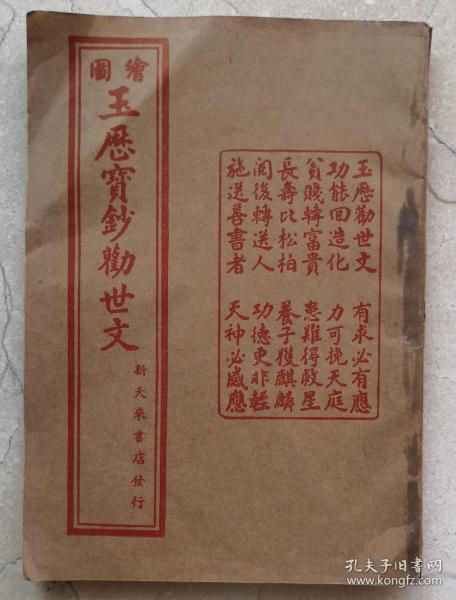 繪圖
玉歷寶鈔勸世文
新天來書店發行
玉歷勸世文 有求必有應
功能回造化 力可挽天庭
貧賤轉富貴 患難得救星
長壽比松柏 養子獲麒麟
閱後轉送人 功德更非輕
施送善書者 天神必感應
孔夫子旧书网
www.kongfz.com